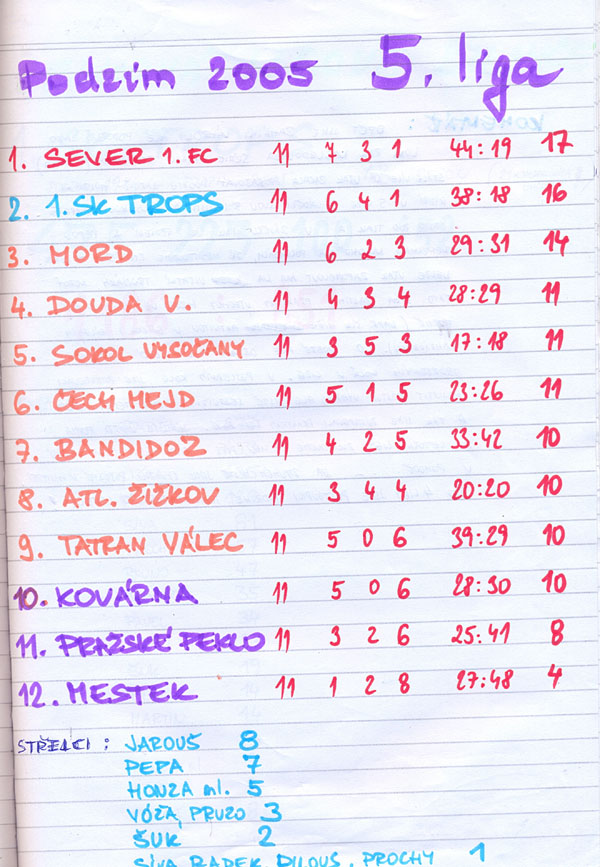 Podzim 2005 5. liga
1. SEVER 1. FC 11 7 3 1 44:19 17
2. 1. SK TROPS 11 6 4 1 38:18 16
3. MORD 11 6 2 3 29:31 14
4. DOUDA V. 11 4 3 4 28:29 11
5. SOKOL VYSOČANY 11 3 5 3 17:18 11
6. ČECH MEJD 11 5 1 5 23:26 11
7. BANDIDOZ 11 4 2 5 33:42 10
8. ATL. ŽIŽKOV 11 3 4 4 20:20 10
9. TATRAN VÁLEC 11 5 0 6 39:29 10
10. KOVÁRNA 11 5 0 6 28:30 10
11. PRAŽSKÉ PEKLO 11 3 2 6 25:41 8
12. MESTEK 11 1 2 8 27:48 4
STŘELCI: JAROUŠ 8
PEPA 7
HONZA ml. 5
VÓŽA, PRUZO 3
ŠUK 2
SÍVA, RADEK, DILOUŠ, PROCHY 1